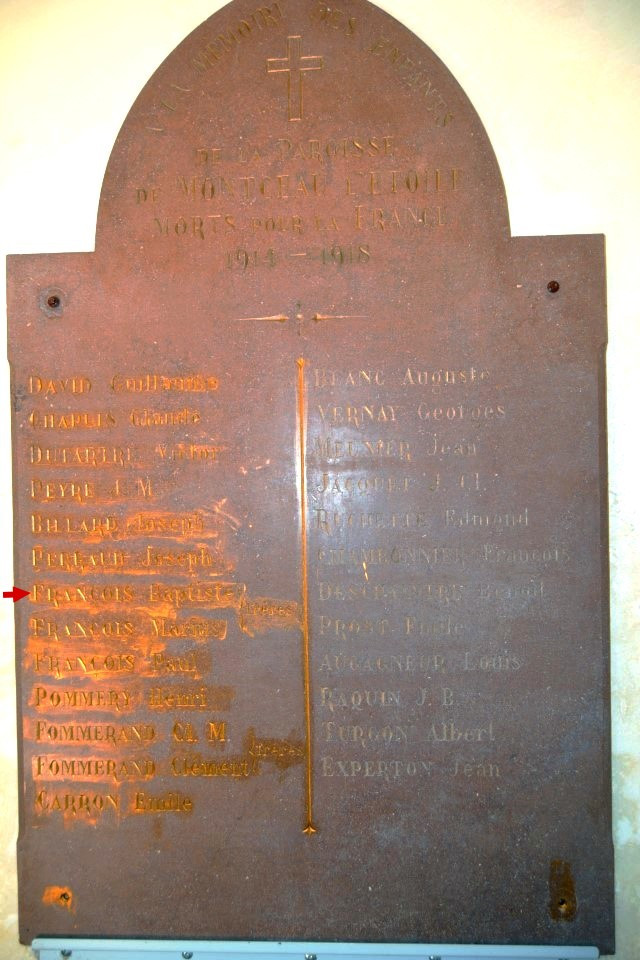 A LA MÉMOIRE DES ENFANTS
DE LA PAROISSE
DE MONTCEAU L'ETOILE
MORTS POUR LA FRANCE
1914 – 1918
DAVID Guillaume
CHARLES Claude
DUTARTRE Victor
PEYRE J. M.
BILLARD Joseph
PERRAUD Joseph
FRANÇOIS Baptiste
FRANÇOIS Marius
frères
FRANÇOIS Paul
POMMERY Henri
FOMMERAND Cl. M.
FOMMERAND Clément
frères
CARRON Emile
BLANC Auguste
VERNAY Georges
MEUNIER Jean
JACQUET J. Cl.
Edmond
CHAMBONNIER François
DESCHARTRE Benoit
PROST Emile
AUGAGNEUR Louis
RAQUIN J. B.
TURGON Albert
EXPERTON Jean